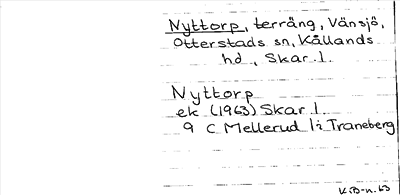 Nyttorp, terräng, Vänsjö,
Otterstads sn, Kållands
hd, Skar. l.
Nyttorp
ek (1963) Skar l.
9 C Mellerud l:i Traneberg
K.B-n. 63